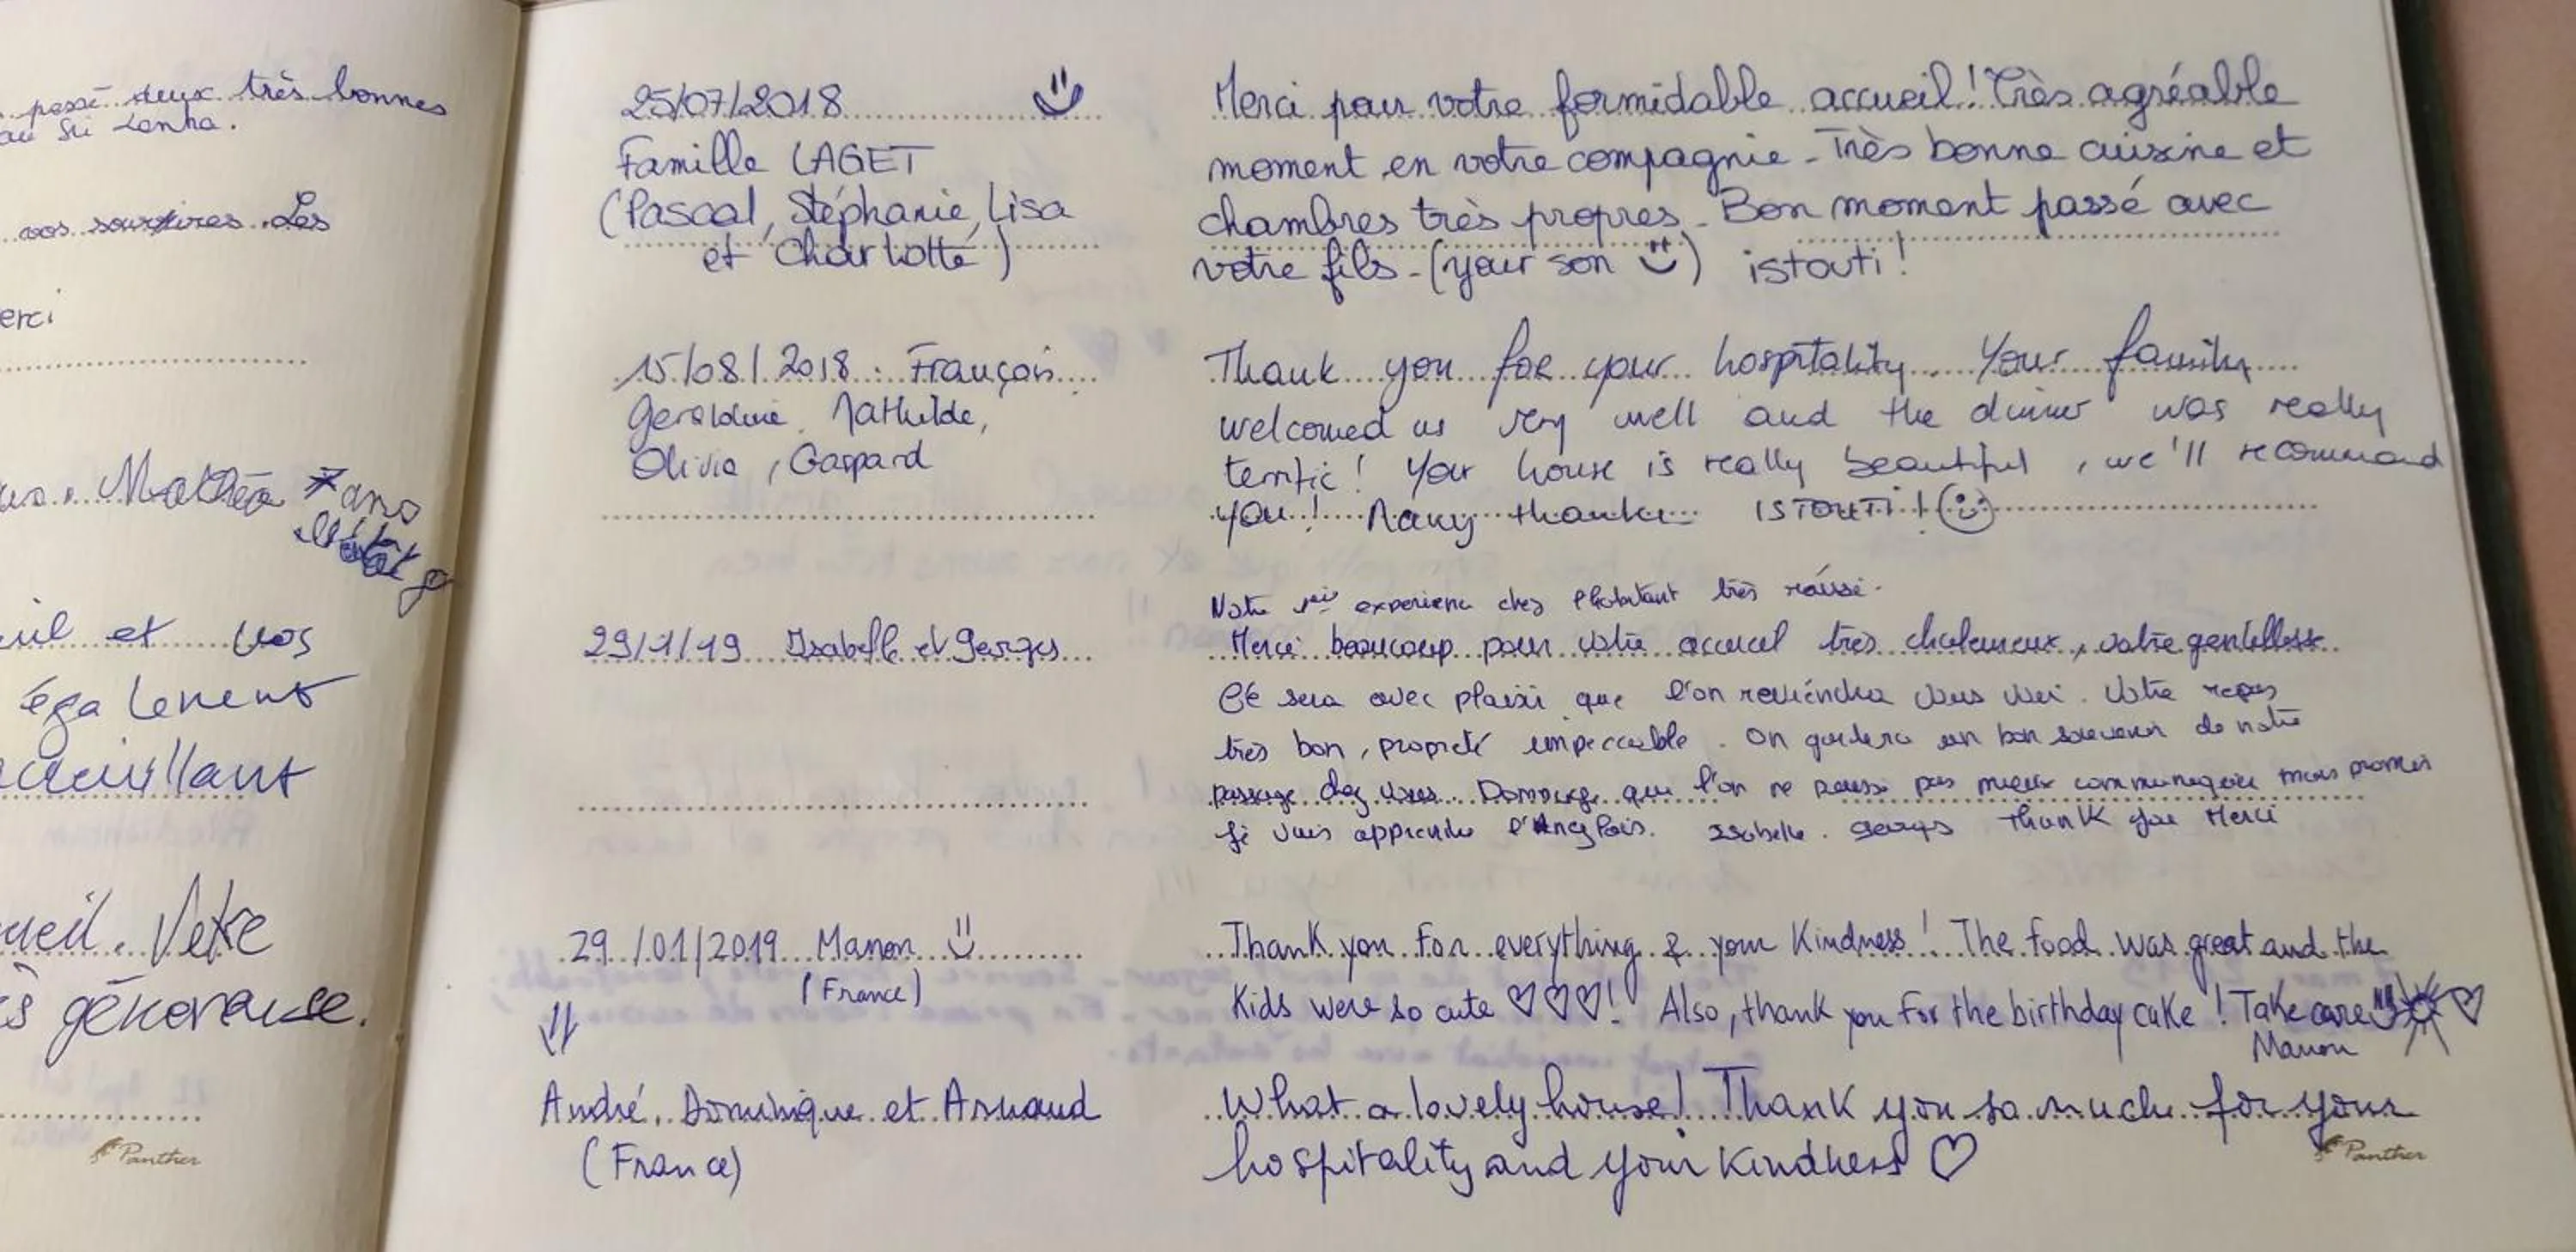 passé deux très bonnes
au Sri Lanka.
vos sourires. Les
erci
Mathéo 7 ans
et vos
également
accueillant
ueil. Votre
s généreuse.
Panther
25/07/2018
Famille LAGET
(Pascal, Stéphanie, Lisa
et Charlotte)
Merci pour votre formidable accueil! Très agréable
moment en votre compagnie - Très bonne cuisine et
chambres très propres - Bon moment passé avec
votre fils - (your son ) istouti!
15/08/2018: François
Geraldine, Mathilde,
Olivia, Gaspard
Thank you for your hospitality. Your family
welcomed us very well and the dinner was really
terrific! Your house is really beautiful, we'll recommand
you! Many thanks ISTOUTI!
29/1/19 Isabelle et Georges
Notre experience chez l'habitant très réussi.
Merci beaucoup pour votre accueil très chaleureux, votre gentillesse
Ce sera avec plaisir que l'on reviendra vous voir. Votre repas
très bon, propreté impeccable. On gardera un bon souvenir de notre
passage chez vous. Dommage que l'on ne puisse pas mieux communiquer mais promis
je vais apprendre l'Anglais. Isabelle. Georges Thank you Merci
29/01/2019 Manon
(France)
Thank you for everything & your Kindness! The food was great and the
Kids were so cute ♡♡♡! Also, thank you for the birthday cake! Take care ♡
Manon
André, Dominique et Arnaud
(France)
What a lovely house! Thank you so much for your
hospitality and your kindness ♡
Panther